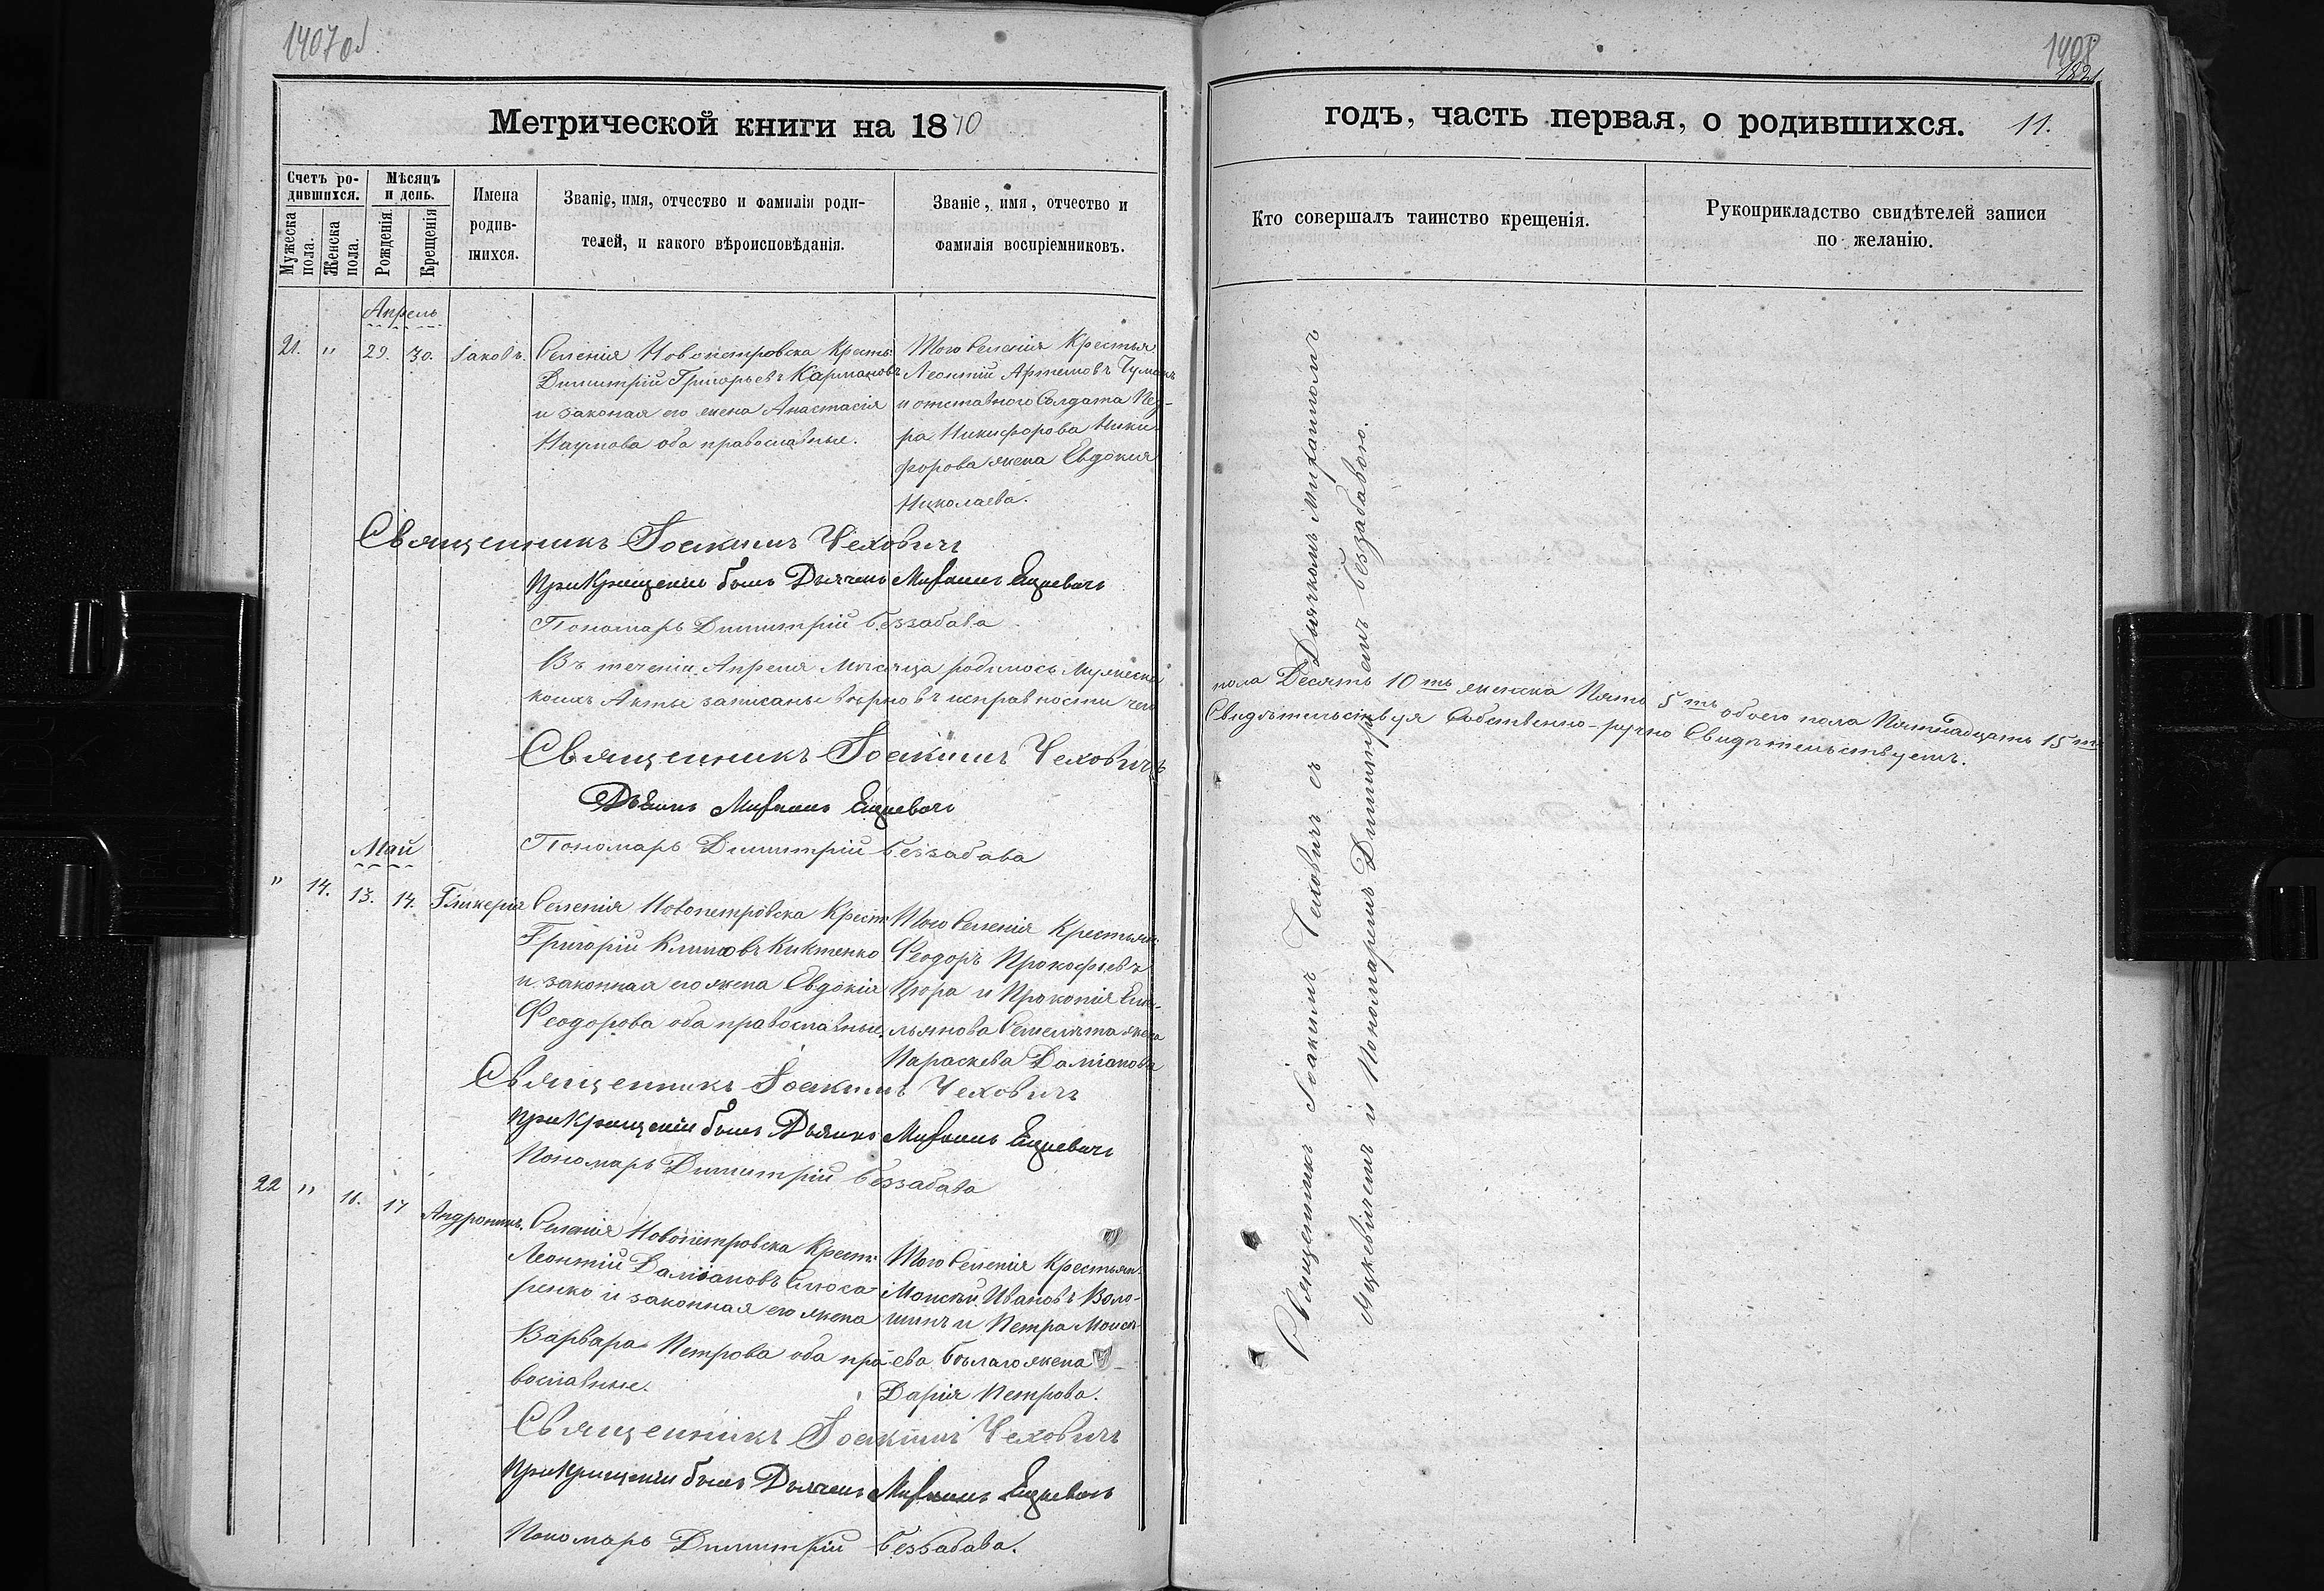 1407 об
Метрической книги на 1870
Счетъ ро-
дившихся.
Мѣсяцъ
и день.
Мужеска пола.
Женска пола.
Рожденія.
Крещенія
Имена
родив-
шихся.
Званіе, имя, отчество и фамилія роди-
телей, и какого вѣроисповѣданія.
Званіе, имя, отчество и
фамилія воспріемниковъ.
Апрель
21. " 29. 30. Іаковъ.
Селенія Новопетровска Крестъ:
Димитрій Григорьевъ Кармановъ
и законая его жена Анастасія
Наумова оба православные.
Того Селенія Крестья:
Леонтій Артемовъ
и отставного Солдата Пет-
ра Никифорова Ники-
форова жена Евдокія
Николаева.
Священникъ Іоакимъ Чеховичъ
При Крещеніи былъ Дьячекъ Михаилъ
Пономарь Димитрій Беззабава
Въ теченіи Апреля Мѣсяца родилось Мужеска
коихъ Акты записаны вѣрно въ исправности чего
Священникъ Іоакимъ Чеховичъ
Михаилъ
Пономарь Димитрій Беззабава
Май
" 14. 13. 14. Гликерія
Селенія Новопетровска Крест:
Григорій Климовъ Киктенко
и законная его жена Евдокія
Феодорова оба православные.
Того Селенія Крестьян:
Феодоръ Прокофьевъ
Цюра и Прокопія Еме-
льянова жена
Параскева Даміанова
Священникъ Іоакимъ Чеховичъ
При Крещеніи былъ Дьячекъ Михаилъ
Пономарь Димитрій Беззабава
22 " 16. 17 Андроникъ.
Селенія Новопетровска Крест:
Леонтій Даміановъ Слюса-
ренко и законная его жена
Варвара Петрова оба пра-
вославные.
Того Селенія Крестьян:
Моисей Ивановъ Воло-
шинъ и Петра Моисе-
ева Бѣлаго жена
Дарія Петрова.
Священникъ Іоакимъ Чеховичъ
При Крещеніи былъ Дьячекъ Михаилъ
Пономарь Димитрій Беззабава.
1408
годъ, часть первая, о родившихся. 11.
Кто совершалъ таинство крещенія.
Рукоприкладство свидѣтелей записи
по желанію.
пола Десять 10ть женска Пять 5ть обоего пола Пятнадцать 15ть
Свидѣтельствуя Собственно-ручно Свидѣтельствуемъ.
Священникъ Іоакимъ Чеховичъ съ Дьячкомъ Михаиломъ
Яцкевичемъ и Пономаремъ Димитріемъ Беззабавою.